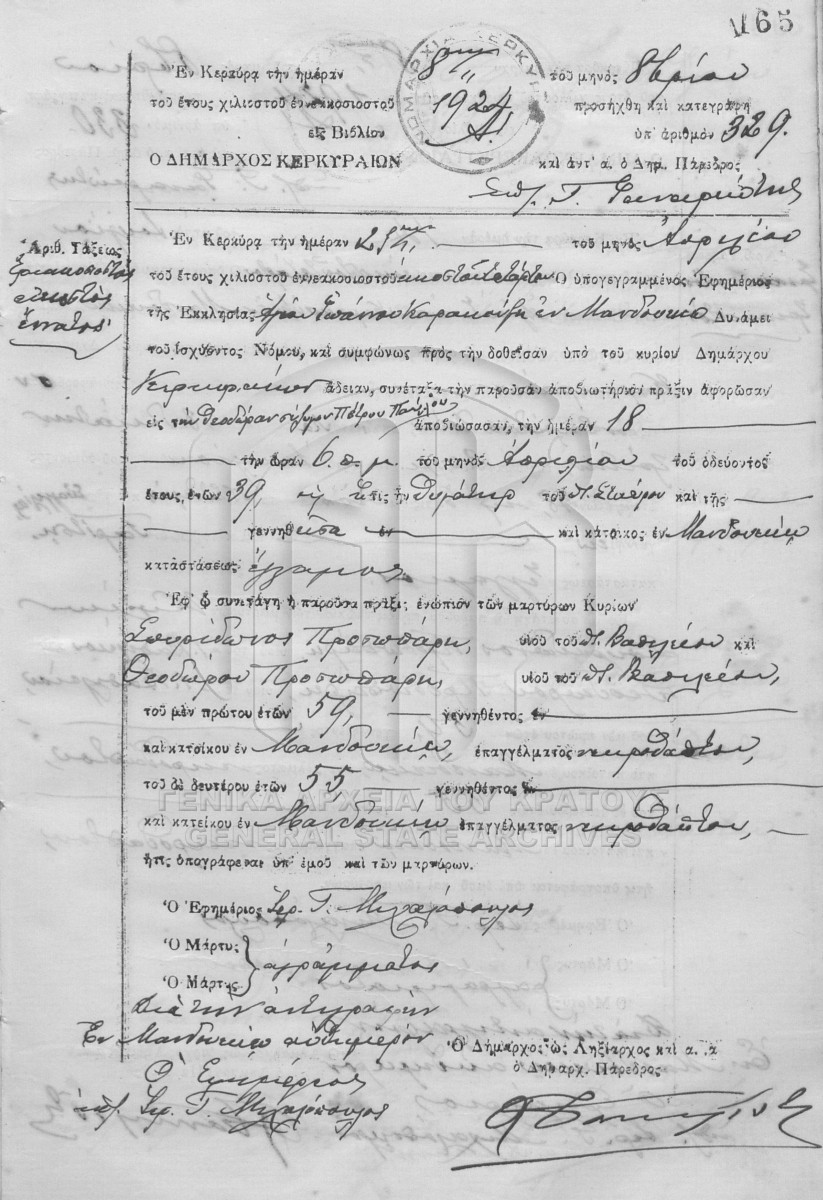 165
Ἐν Κερκύρᾳ τὴν ἡμέραν 8 τοῦ μηνὸς 8βρίου
τοῦ ἔτους χιλιοστοῦ ἐννεακοσιοστοῦ 1924 προσήχθη καὶ κατεγράφη
εἰς Βιβλίον Α' ὑπ' ἀριθμὸν 329.
Ο ΔΗΜΑΡΧΟΣ ΚΕΡΚΥΡΑΙΩΝ καὶ ἀντ' α. ὁ Δημ. Πάρεδρος
ΝΟΜΑΡΧΙΑ ΚΕΡΚΥ
Γ.
Ἀριθ. Τάξεως
τριακοστὸς
εἰκοστὸς
ἔννατος
Ἐν Κερκύρᾳ τὴν ἡμέραν τοῦ μηνὸς Ἀπριλίου
τοῦ ἔτους χιλιοστοῦ ἐννεακοσιοστοῦ εἰκοστοῦ τετάρτου Ὁ ὑπογεγραμμένος Ἐφημέριος
τῆς Ἐκκλησίας Ἁγίου Ἰωάννου ἐν Μανδουκίῳ Δυνάμει
τοῦ ἰσχύοντος Νόμου, καὶ συμφώνως πρὸς τὴν δοθεῖσαν ὑπὸ τοῦ κυρίου Δημάρχου
Κερκυραίων ἄδειαν, συνέταξα τὴν παροῦσαν ἀποβιωτήριον πρᾶξιν ἀφορῶσαν
εἰς τὴν Θεοδώραν σύζυγον Πέτρου Παύλου ἀποβιώσασαν, τὴν ἡμέραν 18
τὴν ὥραν 6 π. μ. τοῦ μηνὸς Ἀπριλίου τοῦ ὁδεύοντος
ἔτους, ἐτῶν 39, ἥτις ἦν θυγάτηρ τοῦ π. Σταύρου καὶ τῆς
γεννηθεῖσα ἐν καὶ κάτοικος ἐν Μανδουκίῳ
καταστάσεως ἔγγαμος.
Ἐφ' ᾧ συνετάγη ἡ παροῦσα πρᾶξις ἐνώπιον τῶν μαρτύρων Κυρίων
Σπυρίδωνος Προσωπάρη, υἱοῦ τοῦ π. Βασιλείου καὶ
Θεοδώρου Προσωπάρη, υἱοῦ τοῦ π. Βασιλείου,
τοῦ μὲν πρώτου ἐτῶν 59, γεννηθέντος ἐν
καὶ κατοίκου ἐν Μανδουκίῳ, ἐπαγγέλματος νεκροθάπτου,
τοῦ δὲ δευτέρου ἐτῶν 55 γεννηθέντος ἐν
ΓΕΝΙΚΑ ΑΡΧΕΙΑ ΤΟΥ ΚΡΑΤΟΥΣ
καὶ κατοίκου ἐν Μανδουκίῳ ἐπαγγέλματος νεκροθάπτου,
GENERAL STATE ARCHIVES
ἥτις ὑπογράφεται ὑπ' ἐμοῦ καὶ τῶν μαρτύρων.
Ὁ Ἐφημέριος Ἱερ. Γ. Μιχαλόπουλος
Ὁ Μάρτυς
ἀγράμματοι
Ὁ Μάρτυς
Διὰ τὴν ἀντιγραφὴν
Ἐν Μανδουκίῳ αὐθημερὸν
Ὁ Ἐφημέριος
Ἱερ. Γ. Μιχαλόπουλος
Ὁ Δήμαρχος ὡς Ληξίαρχος καὶ α. α
ὁ Δημαρχ. Πάρεδρος